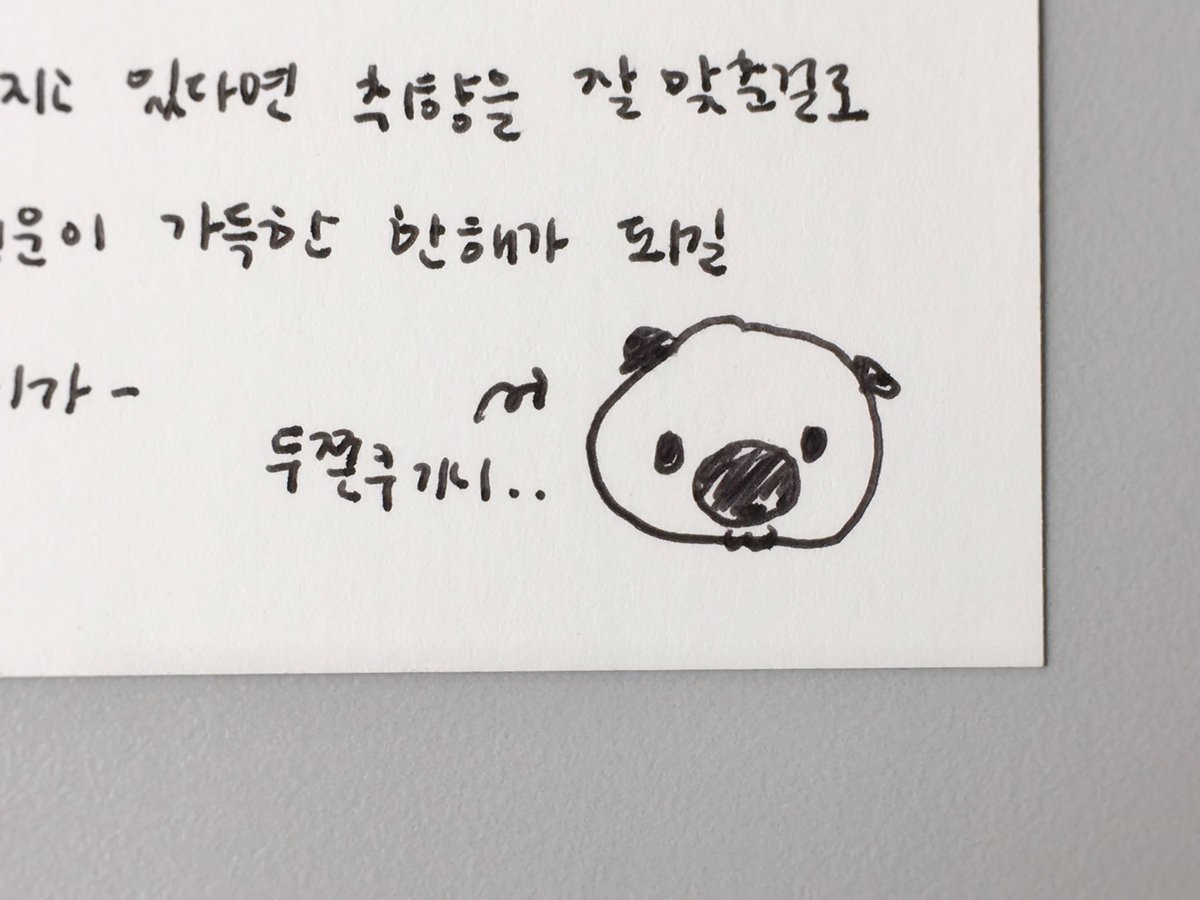 지고 있다면 취향을 잘 맞춘걸로
운이 가득한 한해가 되길
가-
두쫀쿠가니..